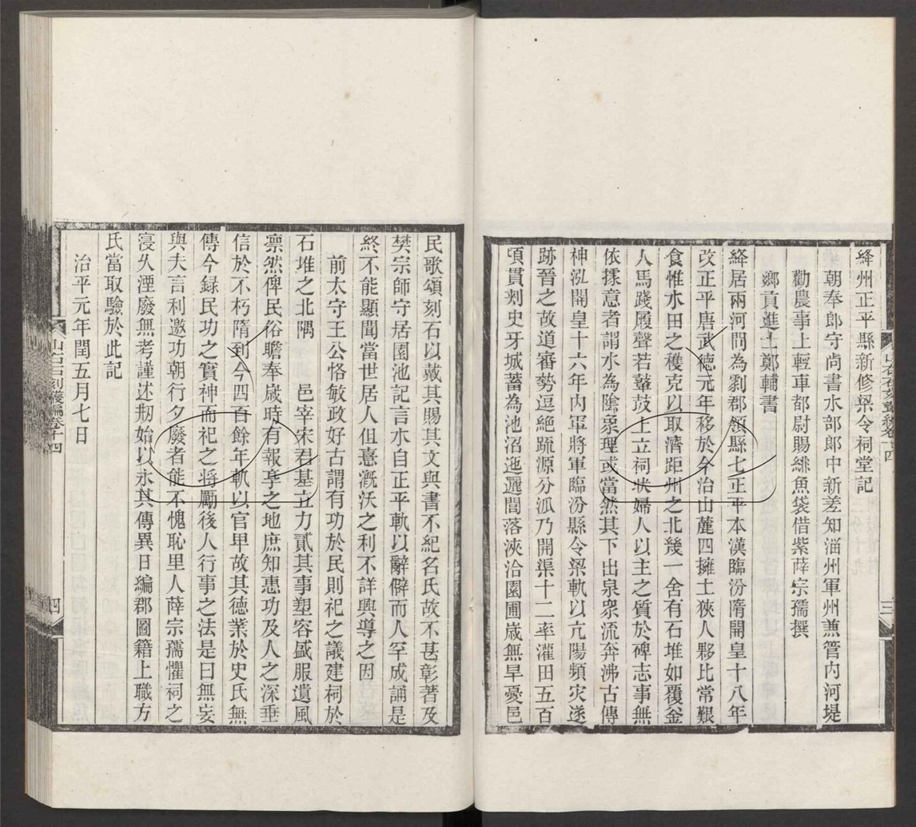 絳州正平縣新修梁令祠堂記
朝奉郎守尚書水部郎中新差知淄州軍州兼管內河堤
勸農事上輕車都尉賜緋魚袋借紫薛宗孺撰
鄉貢進士鄭輔書
絳居兩河間為劇郡領縣七正平本漢臨汾隋開皇十八年
改正平唐武德元年移於今治山麓四擁土狹人夥比常艱
食惟水田之穫克以取濟距州之北幾一舍有石堆如覆釜
人馬踐履聲若鼙鼓上立祠狀婦人以主之質於碑志事無
依據意者謂水為陰衆理或當然其下出泉衆流奔沸古傳
神泓開皇十六年內軍將軍臨汾縣令梁軌以亢陽頻灾遂
跡晉之故道審勢逗絶疏源分派乃開渠十二率灌田五百
頃貫刾史牙城蓄為池沼迤邐閭落浹洽園圃歲無旱憂邑
三
民歌頌刻石以戴其賜其文與書不紀名氏故不甚彰著及
樊宗師守居園池記言水自正平軌以辭僻而人罕成誦是
終不能顯聞當世居人但憙漑沃之利不詳興導之因
前太守王公恪敏政好古謂有功於民則祀之議建祠於
石堆之北隅 邑宰宋君基立力貳其事塑容盛服遺風
凛然俾民俗瞻奉歲時有報享之地庶知惠功及人之深垂
信於不朽隋到今四百餘年軌以官卑故其德業於史氏無
傳今錄民功之實神而祀之將勵後人行事之法是曰無妄
與夫言利邀功朝行夕廢者能不愧恥里人薛宗孺懼祠之
寖久湮廢無考謹述刱始以永其傳異日編郡圖籍上職方
氏當取驗於此記
治平元年閏五月七日
山右石刻叢編卷十四
四